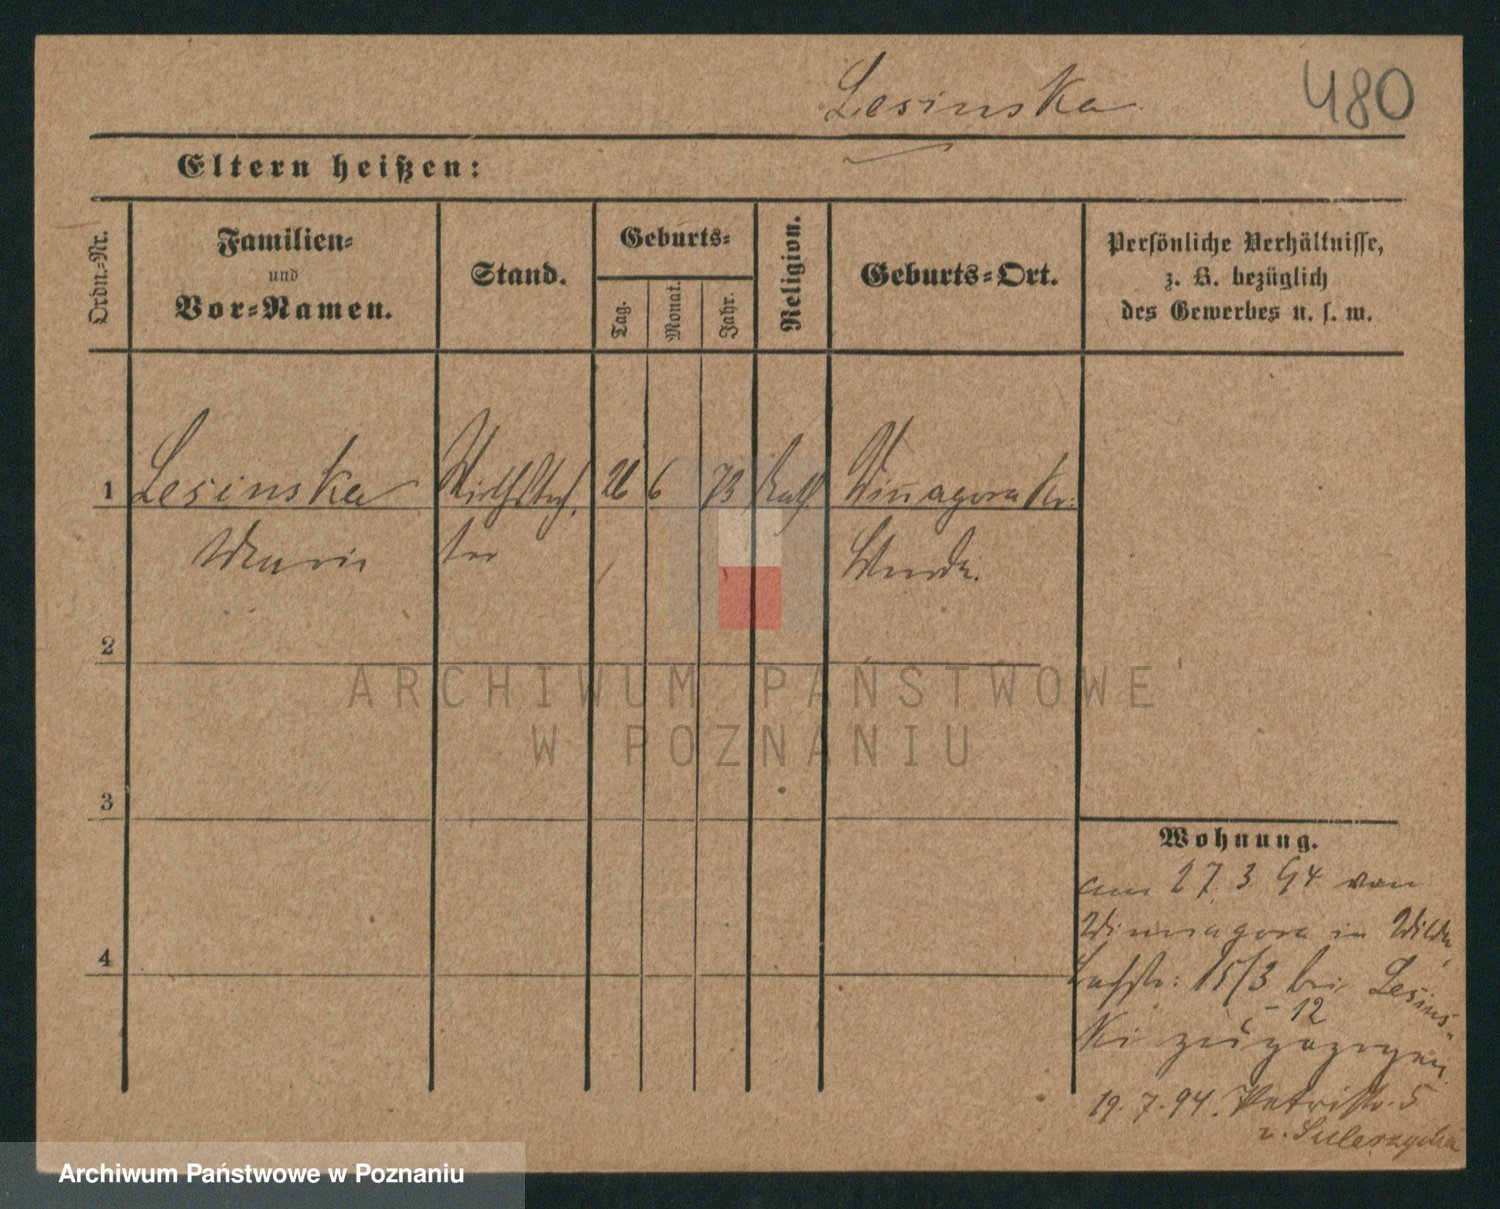 Lesinska 480
Eltern heißen:
Ordn.-Nr.
Familien-
und
Vor-Namen.
Stand.
Geburts-
Tag.
Monat.
Jahr.
Religion.
Geburts-Ort.
Persönliche Verhältnisse,
z. B. bezüglich
des Gewerbes u. s. w.
1 Lesinska Wirthstoch. 26 6 73 Kath Winnagora Kr.
Marie ter
2
3
4
ARCHIWUM PAŃSTWOWE
W POZNANIU
Wohnung.
am 27. 3 94 von
Winnagora in Wilda,
15/3 bei Lesins-
- 12
ki zugezogen
19. 7. 94. Petristr. 5
v. Sulerzycka
Archiwum Państwowe w Poznaniu